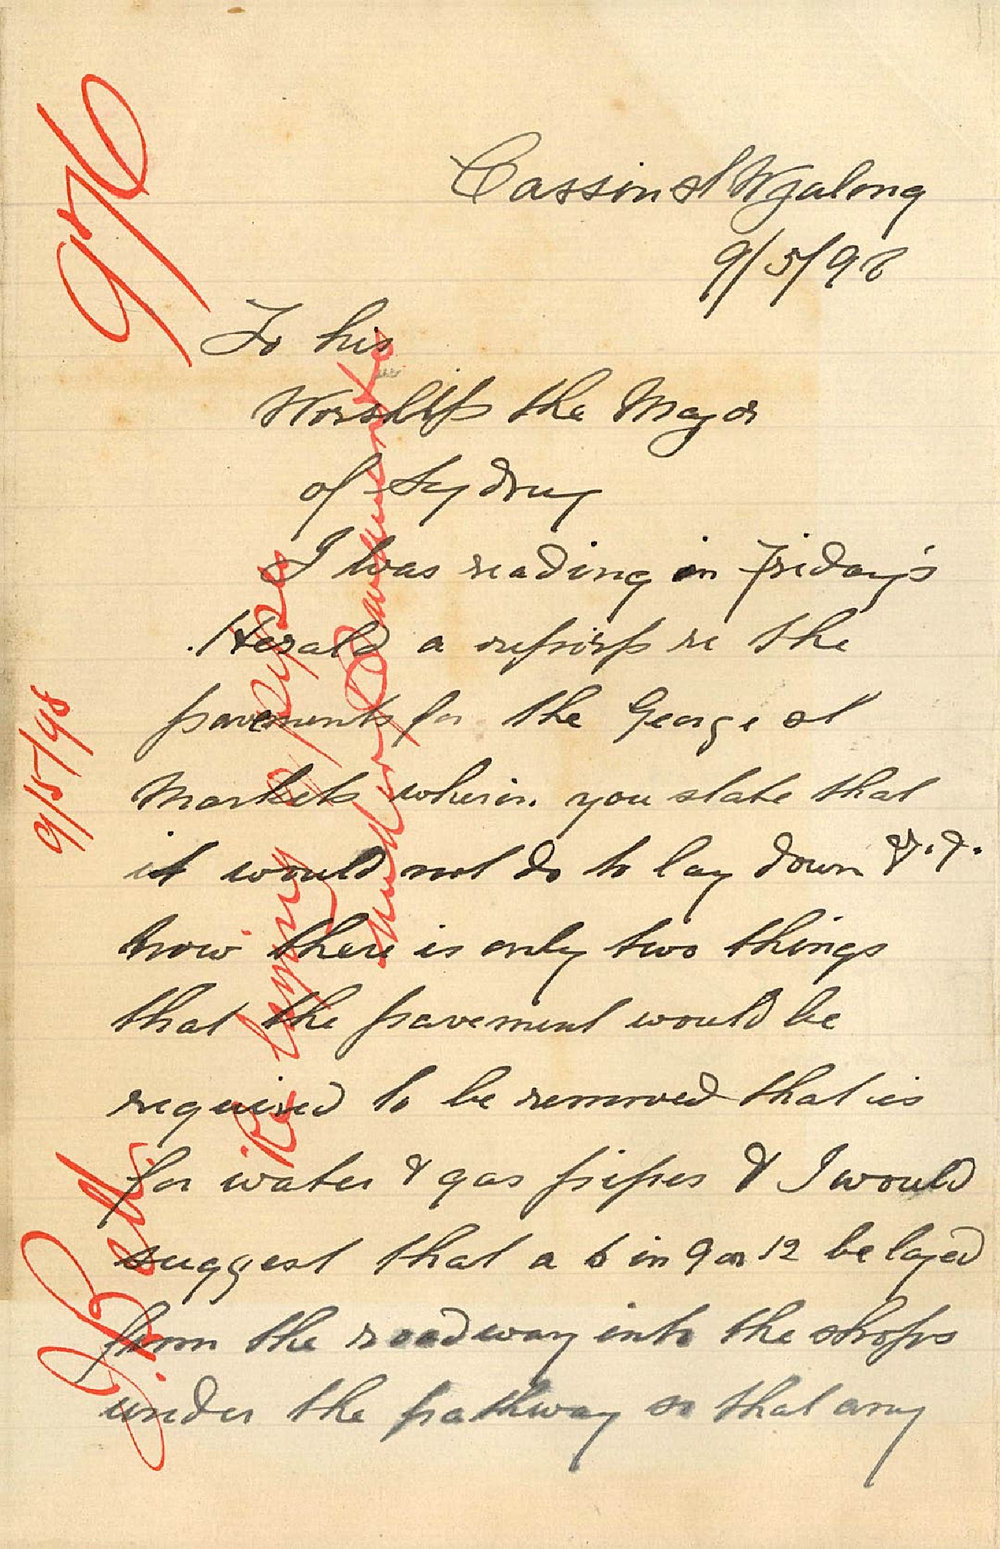 Cassin st Wyalong
9/5/98
To his
Worship the Mayor
of Sydney
I was reading in Friday's
Herald a report re the
pavements for the George st
Markets wherin you state that
it would not do to lay down
now there is only two things
that the pavement would be
required to be removed that is
for water & gas pipes & I would
suggest that a 6 in 9 or 12 be layed
from the roadway into the shops
under the pathway so that any
976
9/5/98
J. Bell.
Re laying of pipes
under Pavements